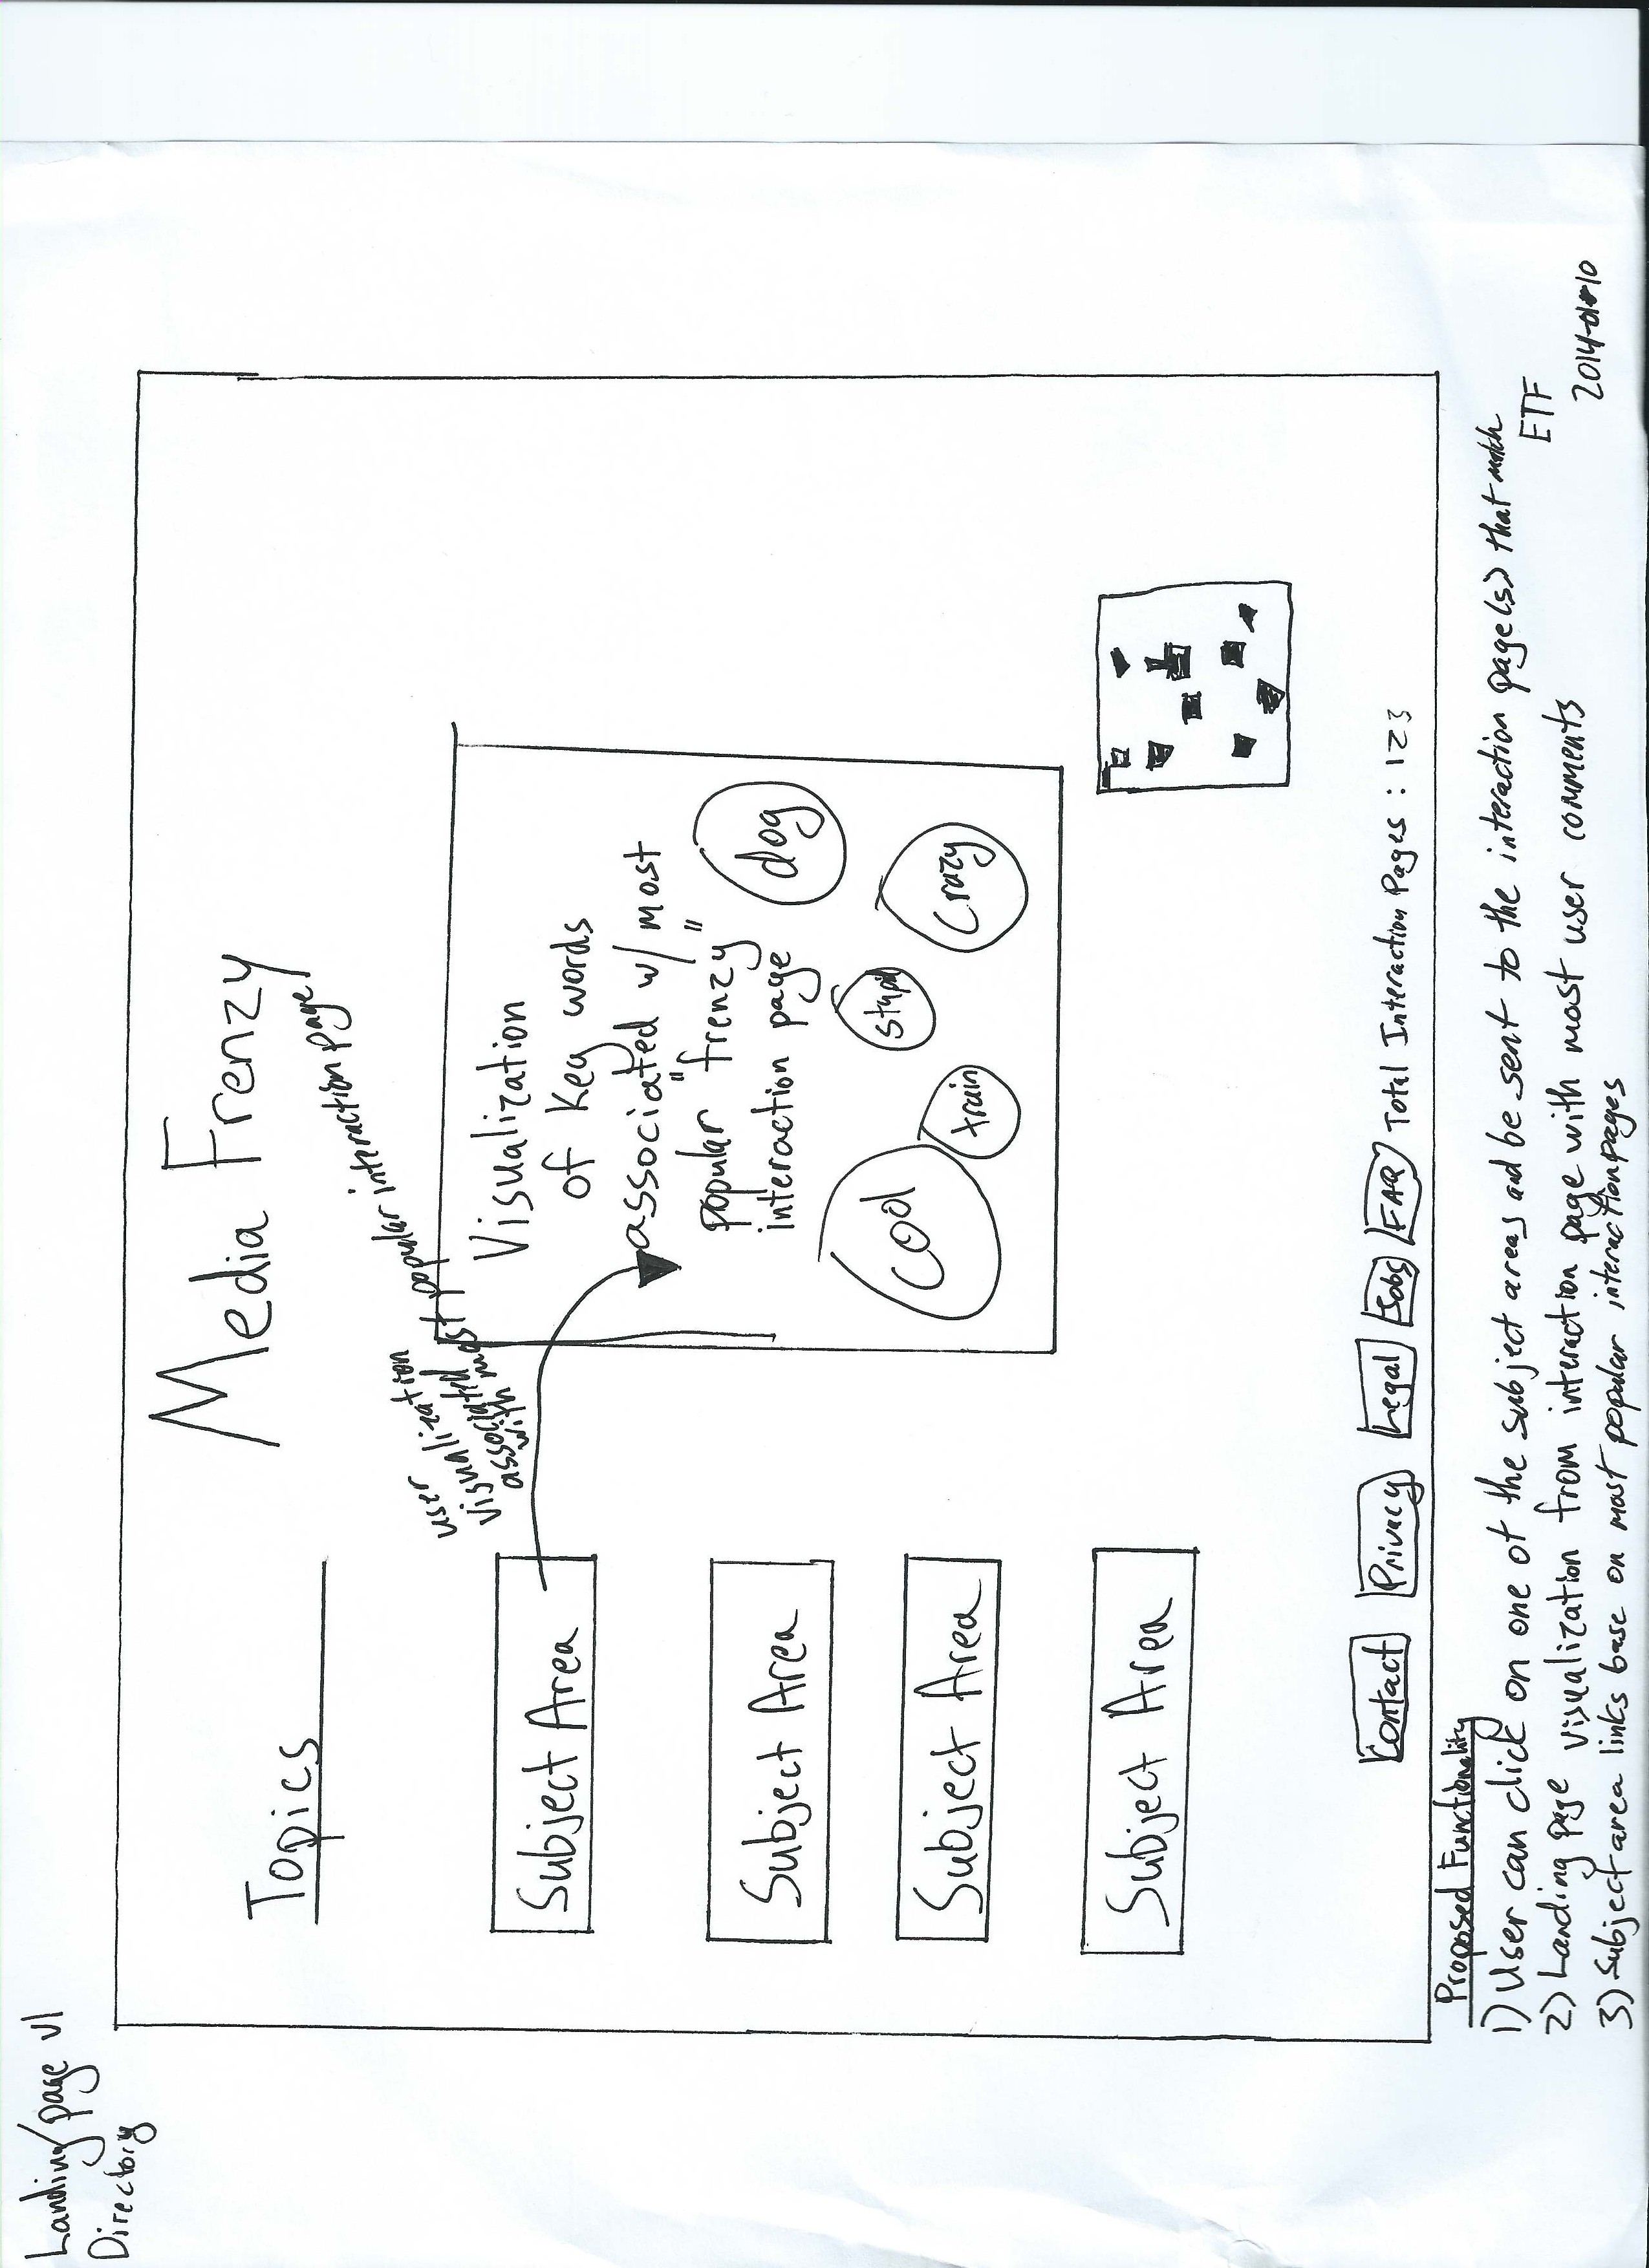 Landing page v1
Directory
Media Frenzy
Topics
user
visualization
associated
with most popular interaction page
Subject Area
Subject Area
Subject Area
Subject Area
Visualization
of Key words
associated w/ most
popular "frenzy"
interaction page
dog
cool
stupid
train
crazy
Contact Privacy Legal Jobs FAQ Total Interaction Pages : 123
Proposed Functionality
1) User can click on one of the subject areas and be sent to the interaction page(s) that match
2) Landing page visualization from interaction page with most user comments
3) Subject area links base on most popular interaction pages
ETF
2014-01-10